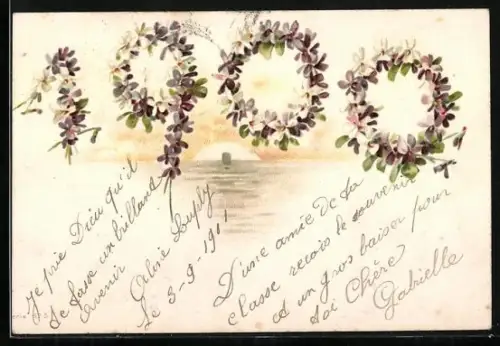 1900
Je prie Dieu qu'il
te fasse un brillant
avenir
Aline
Le 3-9-1901
D'une amie de ta
classe reçois le souvenir
et un gros baiser pour
toi Chère
Gabrielle